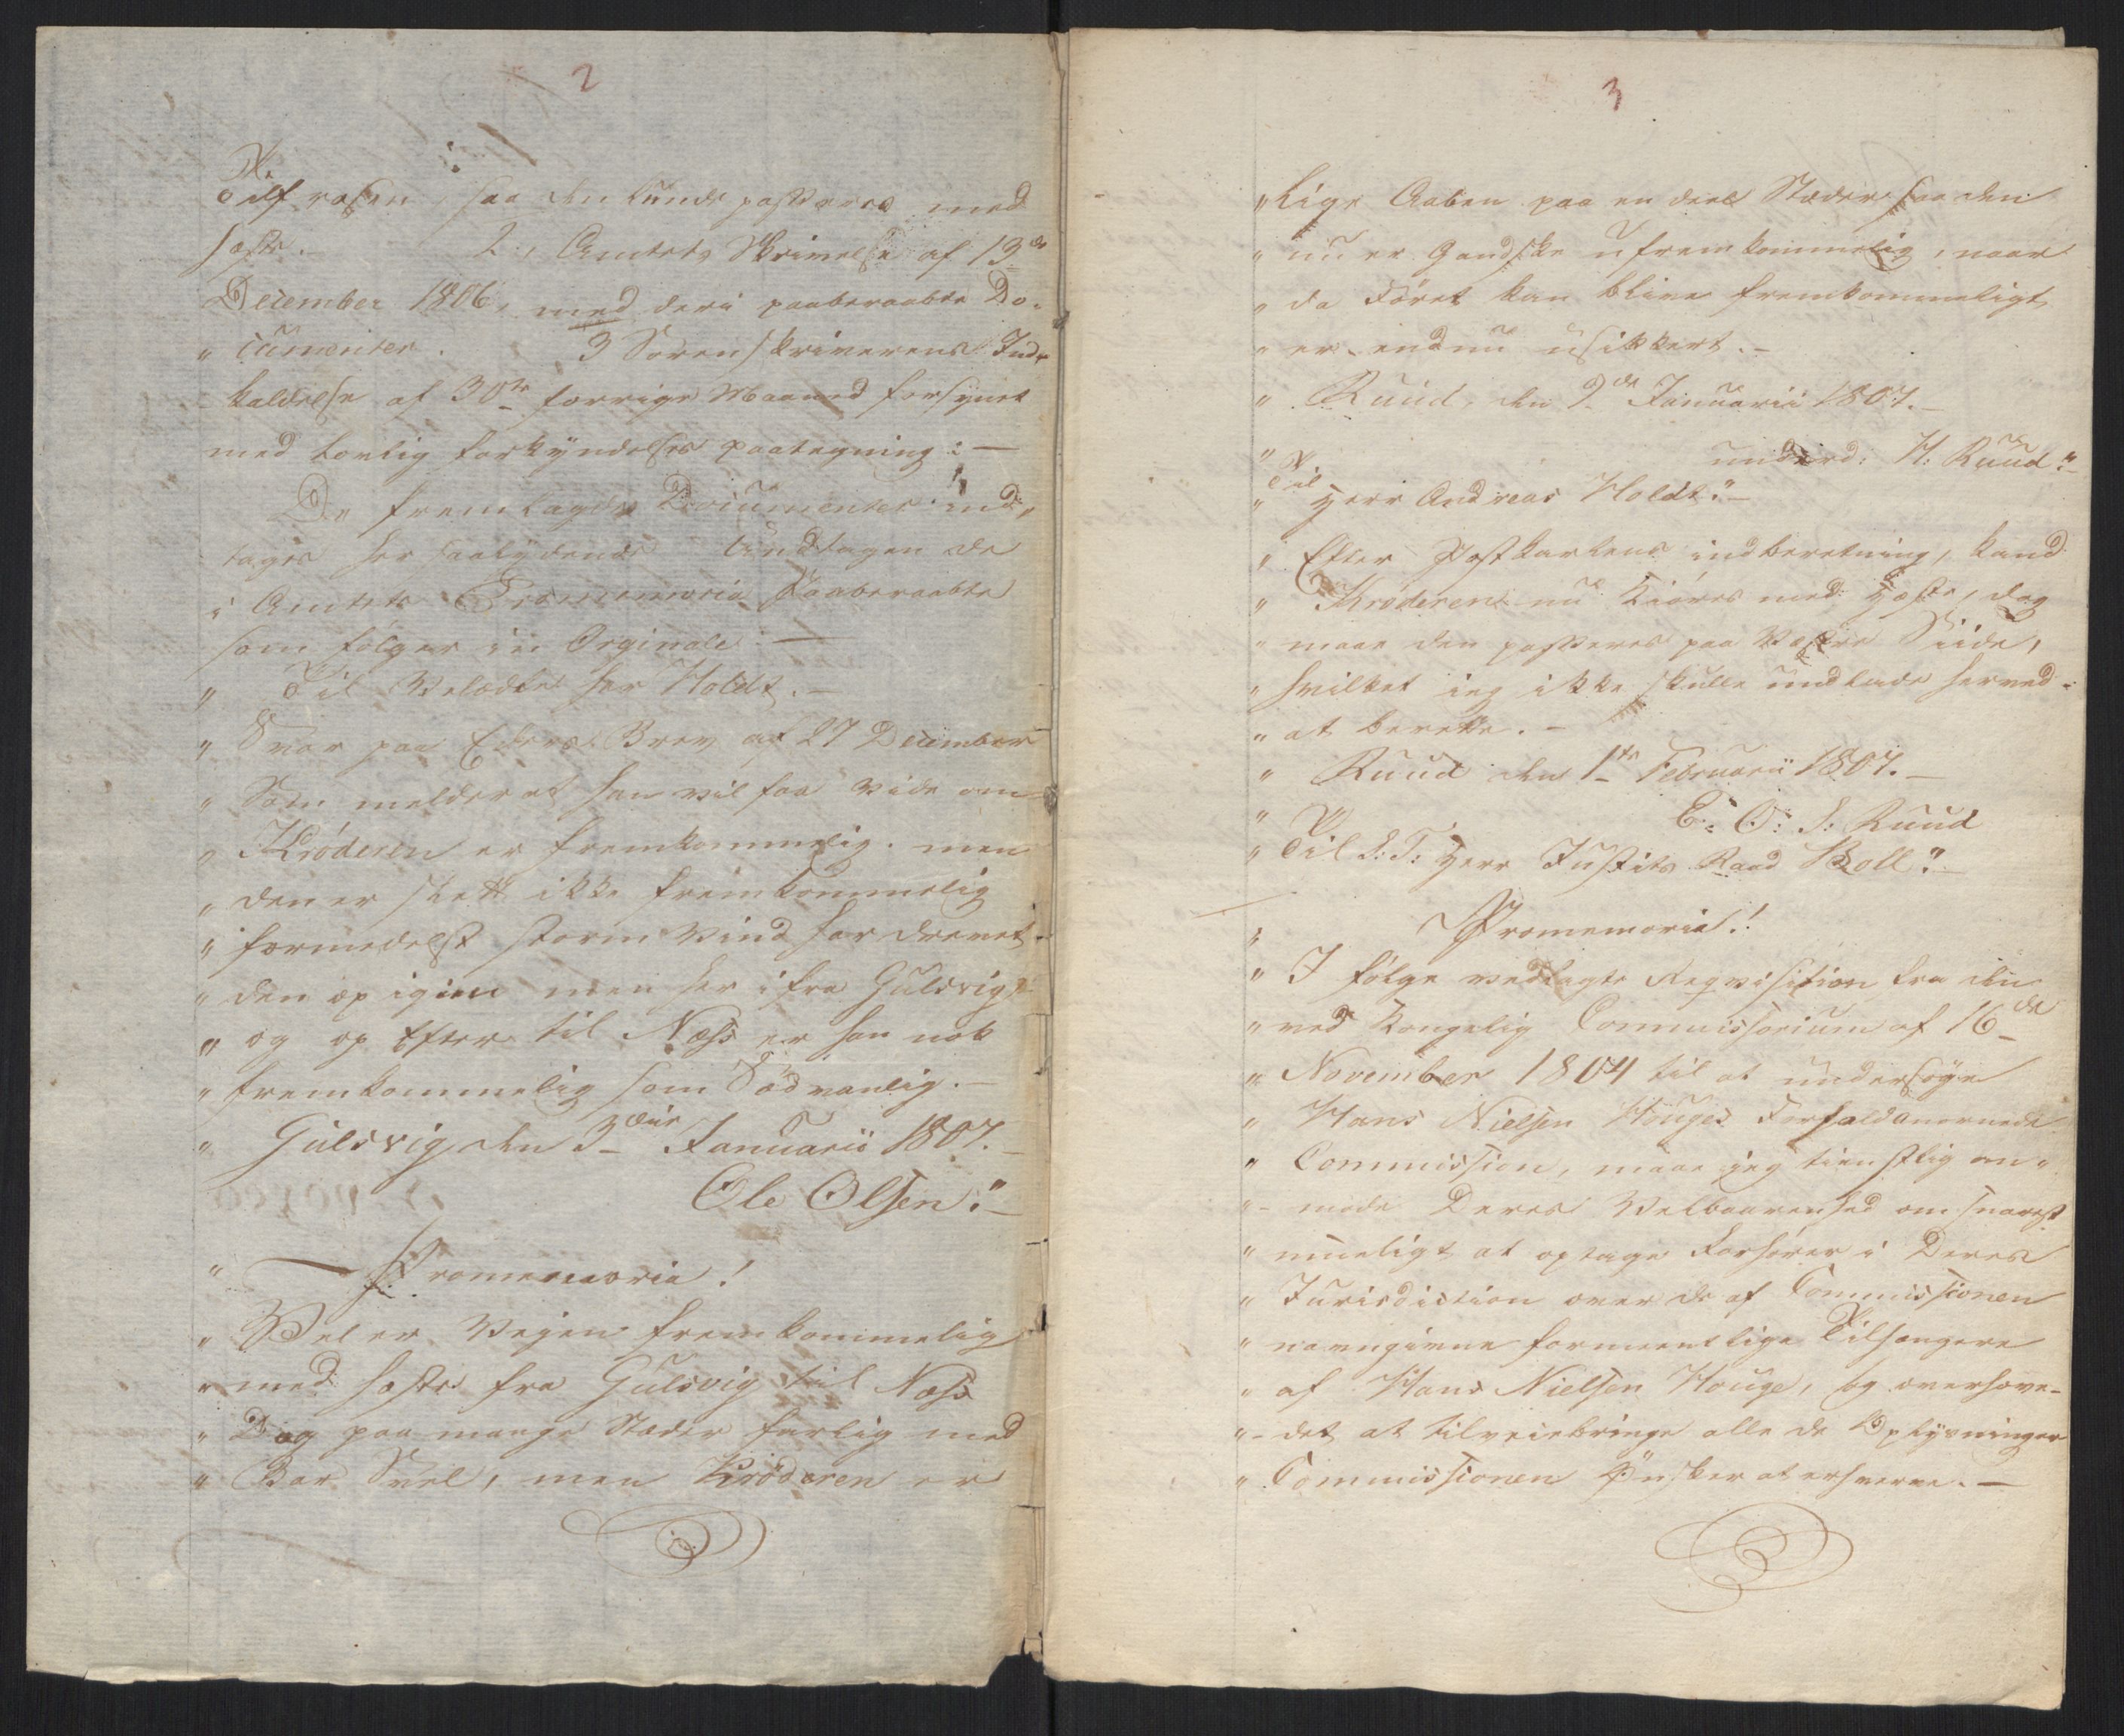 2
Tilfrosen, saa den kunde passeres med
hæste. 2, Amtets Skrivelse af 13de
December 1806, med deri paaberaabte Do-
" cumenter. 3 Sorenskriverens Ind-
kaldelse af 30te forrige Maaned forsynet
med lovlig forkyndelses paategning: —
De fremlagde Documenter ind-
tages her saalydende undtagen de
i Amtets Promemoria Paaberaabte
som følger in Orginale: —
" Til Velædle Her Holdt. —
" Svar paa Eders Brev af 27 December
" Som melder at han vil faa vide om
" Krøderen er fremkommelig. men
" den er slett ikke fremkommelig
" formedelst storm Vind har drevet
" den op igien men her ifra Gulsvig
" og op Efter til Næss er han nok
" fremkommelig som Sædvanlig. —
" Gulsvig den 3die Januarii 1807. —
Ole Olsen." —
" — Promemoria!
" Vel er Vejen fremkommelig
" med hæste fra Gulsvig til Næss
" Dog paa mange Stæder farlig med
" Bar Svel, men Krøderen er
3
" lige Aaben paa en deel Stæder saa den
" nu er Gandske ufremkommelig, naar
" da Føret kan blive fremkommeligt
" er endnu usikkert. —
" Ruud, den 9de Januarii 1807. —
" underd: H: Ruud." —
" Til Herr Andreas Holdt." —
" Efter Postkarlens indberetning, kand
" Krøderen nu kiøres med Hæste, dog
" maae den passeres paa Vestre Siide,
" hvilket ieg ikke skulle undlade herved
" at berette. —
" Ruud den 1te Februarii 1807. —
" E: O: S: Ruud
" Til S: T: Herr Justits Raad Koll." —
" Promemoria!
" I følge vedlagte Reqvisition fra den
" ved Kongelig Commissorium af 16de
" November 1804 til at undersøge
" Hans Nielsen Houges Forhold anordnede
" Commission, maae jeg tienstlig an-
" - mode Deres Velbaarenhed om snarest
" mueligt at optage Forhører i Deres
" Jurisdiction over de af Commissionen
" navngivne formeentlige Tilhængere
" af Hans Nielsen Houge, og overhove-
" - det at tilveiebringe alle de Oplysninger
" Commissionen Ønsker at erhverve. —